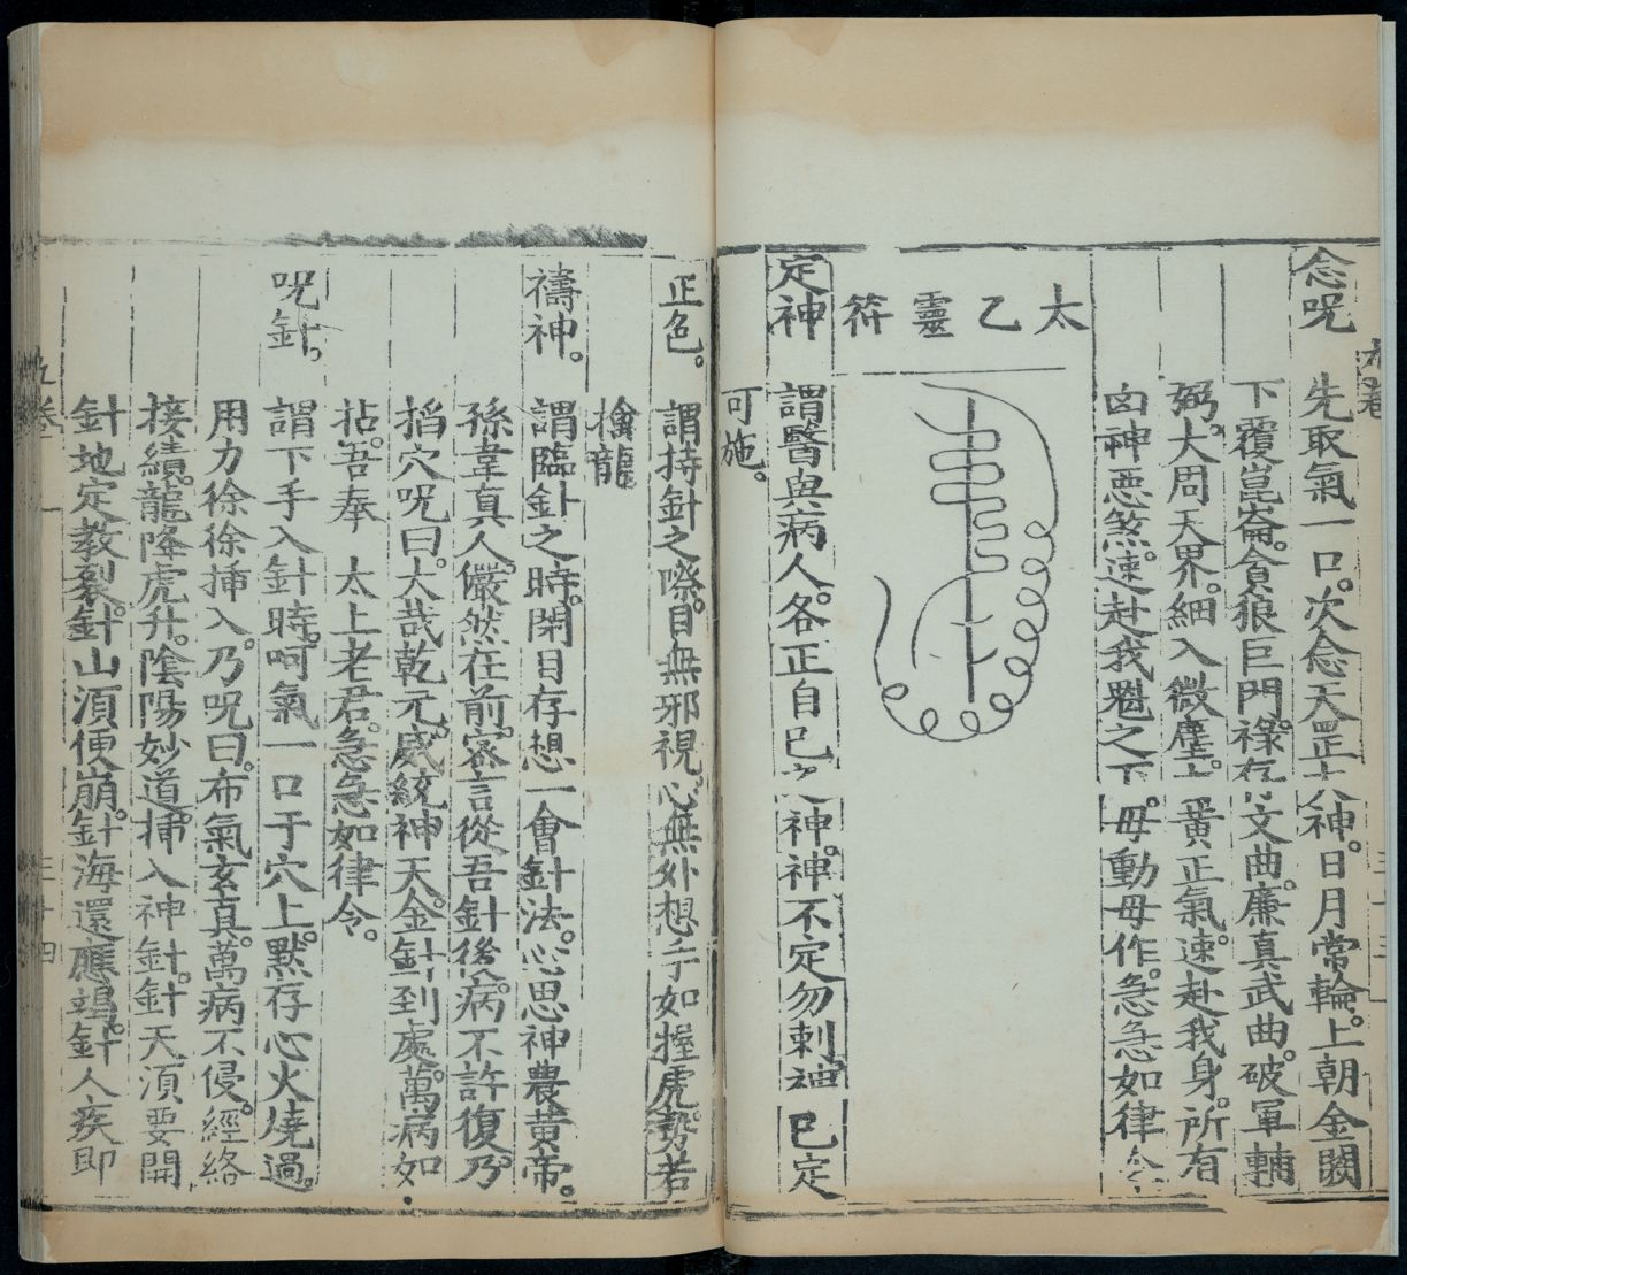 念呪 先取氣一口。次念天罡大神。日月常輪。上朝金闕
下覆崑崙。貪狼巨門。祿存文曲。廉真武曲。破軍輔
弼。大周天界。細入微塵。黃正氣。速赴我身。所有
凶神惡煞。速赴我魁之下。毋動毋作。急急如律令
太乙靈符
定神 謂醫與病人。各正自己之神。神不定勿刺。神已定
可施。
正色。 謂持針之際。目無邪視。心無外想。手如握虎。勢若
擒龍
禱神。 謂臨針之時。閉目存想一會針法。心思神農黃帝。
孫韋真人。儼然在前。密言從吾針後。病不許復。乃
掐穴呪曰。大哉乾元。威統神天。金針到處。萬病如
拈。吾奉 太上老君。急急如律令。
呪針。 謂下手入針時。呵氣一口于穴上。默存心火燒過。
用力徐徐揷入。乃呪曰。布氣玄真。萬病不侵。經絡
接續。龍降虎升。陰陽妙道。揷入神針。針天須要開
針地定教裂。針山須便崩。針海還應竭。針人疾即
九卷 三十四